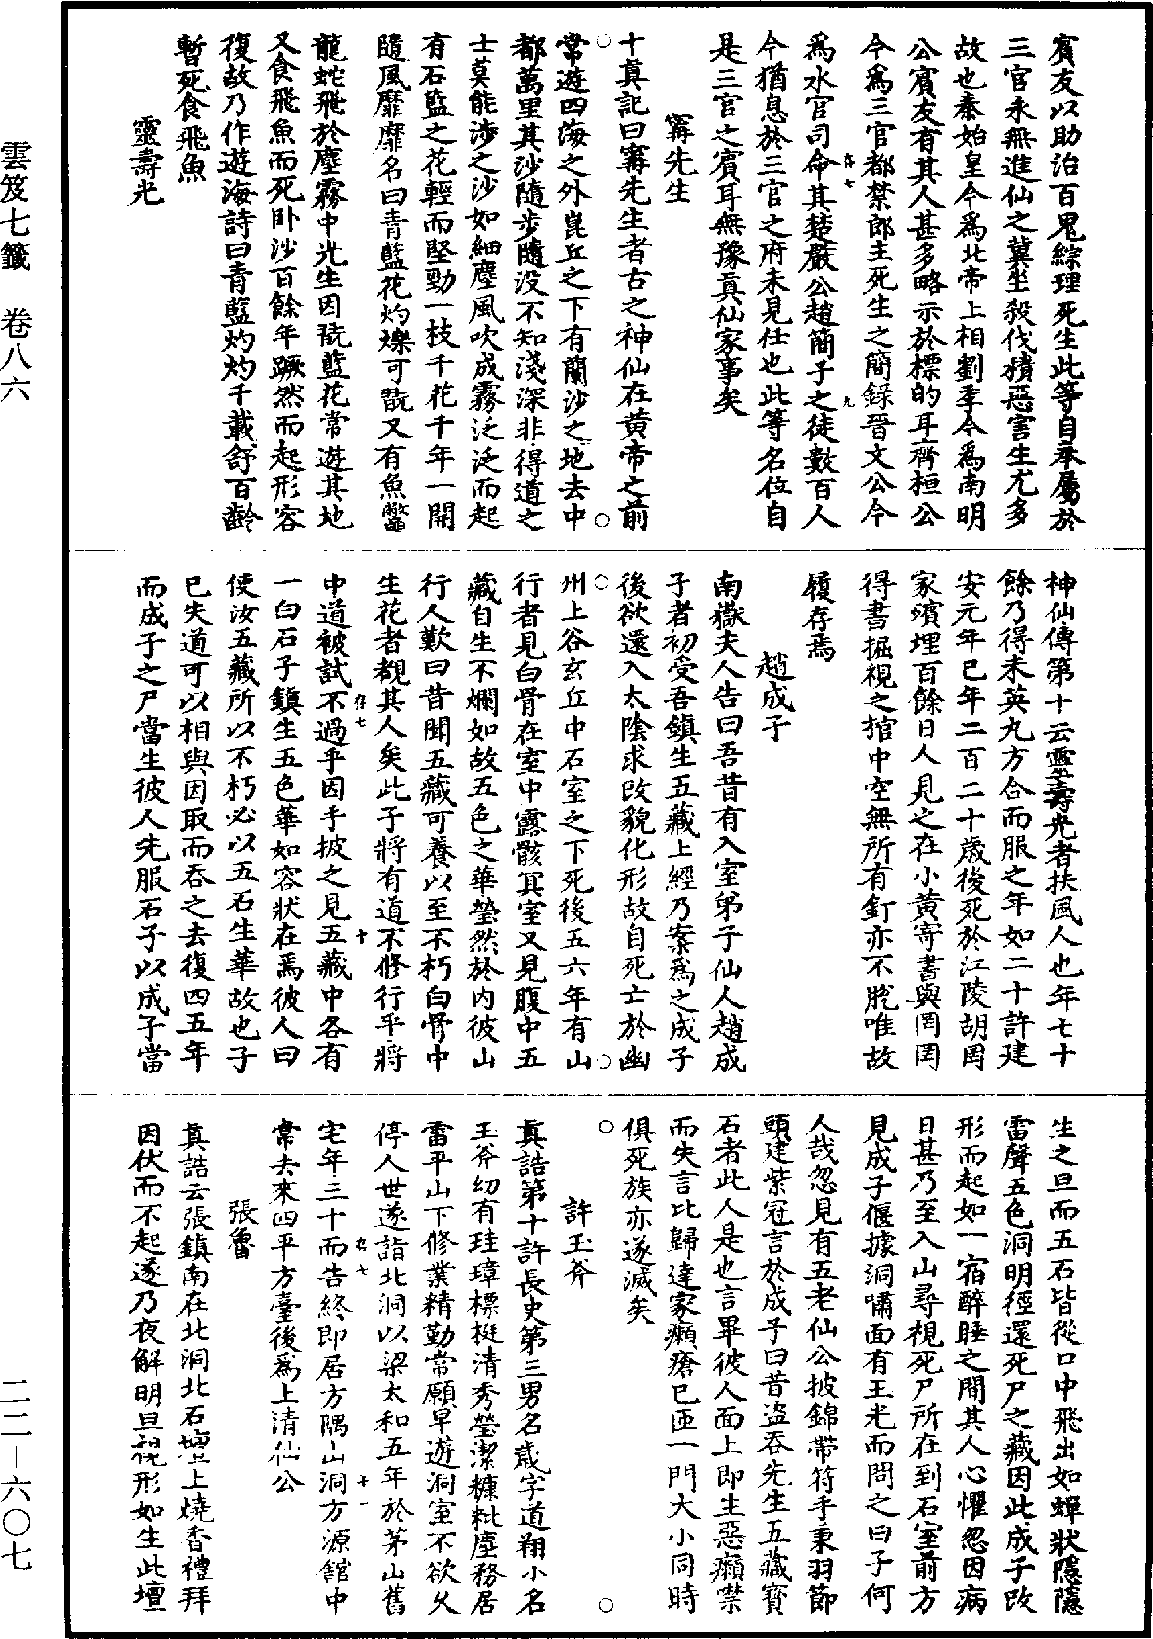 賓友以助治百鬼綜理死生此等自奉屬於
三官永無進仙之冀坐殺伐積惡害生尤多
故也秦始皇今爲北帝上相劉季今爲南明
公賓友有其人甚多略示於標的耳齊桓公
今爲三官都禁郎主死生之簡録晉文公今
爲水官司命其楚嚴公趙簡子之徒數百人
今猶息於三官之府未見任也此等名位自
是三官之賓耳無豫真仙家事矣
甯先生
十真記曰甯先生者古之神仙在黄帝之前
常遊四海之外崑丘之下有蘭沙之地去中
都萬里其沙隨步隨没不知淺深非得道之
士莫能涉之沙如細塵風吹成霧泛泛而起
有石藍之花輕而堅勁一枝千花千年一開
隨風靡靡名曰青藍花灼爍可翫又有魚鼈
龍蛇飛於塵霧中先生因翫藍花常遊其地
又食飛魚而死卧沙百餘年蹶然而起形容
復故乃作遊海詩曰青藍灼灼千載舒百齡
暫死食飛魚
靈壽光
神仙傳第十云靈壽光者扶風人也年七十
餘乃得朱英丸方合而服之年如二十許建
安元年已年二百二十歲後死於江陵胡岡
家殯埋百餘日人見之在小黄寄書與岡岡
得書掘視之棺中空無所有釘亦不脱唯故
履存焉
趙成子
南嶽夫人告曰吾昔有入室弟子仙人趙成
子者初受吾鎮生五藏上經乃案爲之成子
後欲還入太陰求改貌化形故自死亡於幽
州上谷玄丘中石室之下死後五六年有山
行者見白骨在室中露骸冥室又見腹中五
藏自生不爛如故五色之華瑩然於内彼山
行人歎曰昔聞五藏可養以至不朽白骨中
生花者覩其人矣此子將有道不修行乎將
中道被試不過乎因手披之見五藏中各有
一白石子鎮生五色華如容狀在焉彼人曰
使汝五藏所以不朽必以五石生華故也子
已失道可以相與因取而吞之去復四五年
而成子之尸當生彼人先服石子以成子當
生之旦而五石皆從口中飛出如蟬狀隱隱
雷聲五色洞明徑還死尸之藏因此成子改
形而起如一宿醉睡之間其人心懼忽因病
日甚乃至入山尋視死尸所在到石室前方
見成子偃據洞嘯面有玉光而問之曰子何
人哉忽見有五老仙公披錦帶符手秉羽節
頭建紫冠言於成子曰昔盗吞先生五藏寳
石者此人是也言畢彼人面上即生惡癩噤
而失言比歸達家癩瘡已匝一門大小同時
俱死族亦遂滅矣
許玉斧
真誥第十許長史第三男名歲字道翔小名
玉斧幼有珪璋標梃清秀瑩潔糠粃塵務居
雷平山下修業精勤常願早遊洞室不欲久
停人世遂詣北洞以梁太和五年於茅山舊
宅年三十而告終即居方隅山洞方源館中
常去來四平方臺後爲上清仙公
張魯
真誥云張鎮南在北洞北石壇上燒香禮拜
因伏而不起遂乃夜解明旦視形如生此壇
雲笈七籤 卷八六
二二－六〇七